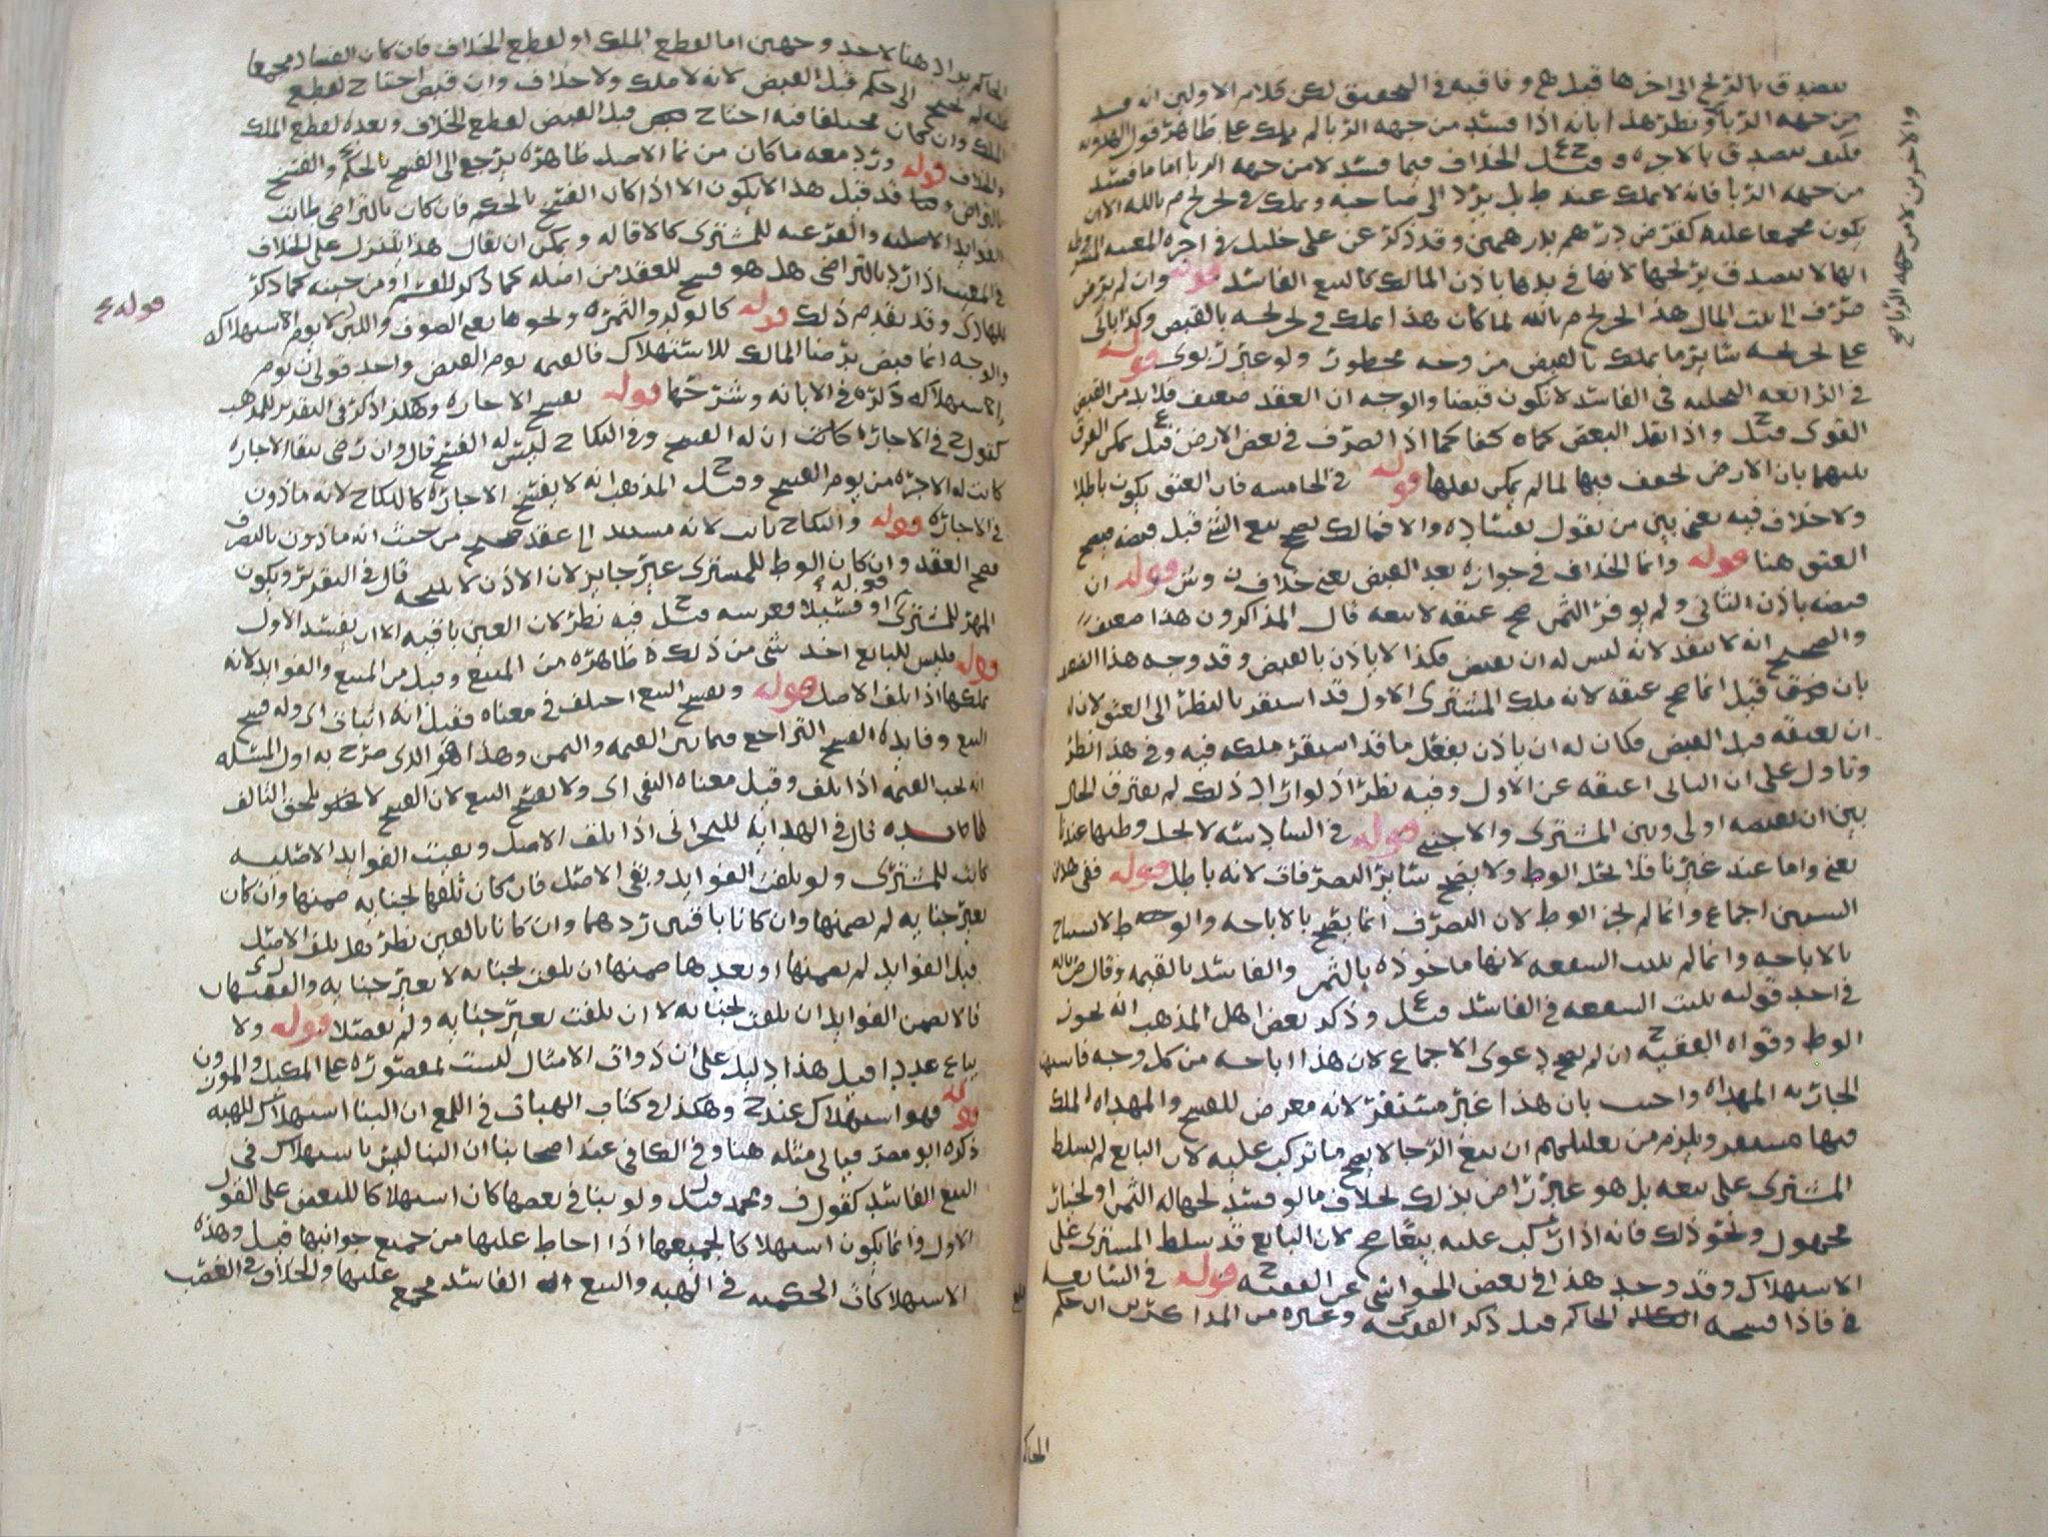 يتصدق بالربح الى اخرها قيل ع وفاقيه في التحقيق لكن كلام الاولين انه فسد
من جهه الربا ونظر هذا بانه اذا فسد من جهه الربا لم يملك على ظاهر قول الهدويه
فكيف يتصدق بالاجره وقيل الخلاف فيما فسد لا من جهه الربا اما ما فسد
من جهه الربا فانه لا يملك عند ط بل يرد الى صاحبه ويملك في لحريج م بالله الا ان
يكون مجمعا عليه كقرض درهم بدرهمين وقد ذكر عن علي خليل في اجره المغنيه
انها لا تتصدق بربحها لانها في يدها باذن المالك كالبيع الفاسد قوله وان لم يرض
صرف الى بيت المال هذا لحريج م بالله لما كان هذا يملك في لحريجه بالقبض وكذا ياتي
على لحريجه سائر ما يملك بالقبض من وجه محظور ولو غير ربوي قوله
في الرابعه التخليه في الفاسد لا تكون قبضا والوجه ان العقد ضعيف فلا بد من القبض
القوي قيل واذا نقل البعض كفا كما اذا تصرف في بعض الارض قيل يمكن الفرق
بينهما بان الارض لحفف فيها لما لم يمكن نقلها قوله في الخامسه فان العتق يكون باطلا
ولا خلاف فيه يعني بين من يقول بفساده والا فمالك يصح بيع الشي قبل قبضه فيصح
العتق هنا قوله وانما الخلاف في جوازه بعد القبض يعني خلاف ن وش قوله ان
قبضه باذن الثاني ولم يوفر الثمن صح عتقه لا بيعه قال المذاكرون هذا ضعيف
والصحيح انه لا ينفذ لانه ليس له ان يقبض فكذا لا ياذن بالقبض وقد وجه هذا
بان قيل انما صح عتقه لانه ملك المشتري الاول قد استقر بالنظر الى العتق لان له
ان يعتقه قبل القبض فكان له ان ياذن بفعل ما قد استقر ملكه فيه وفي هذا نظر
وتاول على ان الثاني اعتقه عن الاول وفيه نظر اذ لو اراد ذلك لم يفترق الحال
بين ان يقبضه اولى وبين المشتري والاجنبي قوله في السادسه لا لحل وطيها عندنا
يعني واما عند غيرنا فلا يحل الوطي ولا يصح سائر التصرفات لانه باطل قوله ففي هذين
السببين اجماع وانما لم لجز الوطي لان التصرف انما يصح بالاباحه والوطي لا يستباح
بالاباحه وانما لم تثبت الشفعه لانها ماخوذه بالثمن والفاسد بالقيمه وقال م بالله
في احد قوليه تثبت الشفعه في الفاسد قيل وذكر بعض اهل المذهب انه لجوز
الوطي وقواه الفقيه ان لم يصح دعوى الاجماع لان هذا اباحه من كل وجه فاشبهت
الجاريه المهداه واجيب بان هذا غير مستقر لانه معرض للفسخ والمهداه الملك
فيها مستقر ويلزم من تعليلهم ان بيع الرحا لا يصح ما تركب عليه لان البايع لم يسلط
المشتري على بيعه بل هو غير راض بذلك لخلاف ما لو فسد لجهاله الثمن او لخيار
مجهول ولحو ذلك فانه اذا تركب عليه بيعا صح لان البايع قد سلط المشتري على
الاستهلاك وقد وجد هذا في بعض الحواشي عن الفقيه قوله في السابعه
في فاذا فسخه الحاكم قيل ذكر الفقيه وغيره من المذاكرين ان حكم
الحاكم
والاخر من لا من جهه الربا صح
الحاكم يراد هنا لاحد وجهين اما لقطع الملك او لقطع الخلاف فان كان الفساد مجمعا
عليه لم يحتج الى حكم قبل القبض لانه لا ملك ولا خلاف وان قبض احتاج لقطع
الملك وان كان مختلفا فيه احتاج قبل القبض لقطع الخلاف وبعده لقطع الملك
والخلاف قوله ورد معه ما كان من نما الاصل ظاهره يرجع الى الفسخ بالحكم والفسخ
بالتراضي وقد قيل هذا لا يكون الا اذا كان الفسخ بالحكم فان كان بالتراضي طابت
الفوايد الاصليه والفرعيه للمشتري كالاقاله ويمكن ان يقال هذا يتنزل على الخلاف
في المعيب اذا رد بالتراضي هل هو فسخ للعقد من اصله كما ذكر للقسم او من حينه كما ذكر
للهادي وقد تقدم ذلك قوله كالولد والثمره ولحوها يعني الصوف واللبن لا يوم الاستهلاك
والوجه انما قبض برضا المالك للاستهلاك فالقيمه يوم القبض واحد قولي ن يوم
الاستهلاك ذكره في الابانه وشرحها قوله يفسخ الاجاره وهكذا ذكر في التقرير للمذهب
كقول ح في الاجاره اكانت ان له الفسخ وفي النكاح ليس له الفسخ قال وان رضي ببقا الاجاره
كانت له الاجره من يوم الفسخ وقيل المذهب انه لا يفسخ الاجاره كالنكاح لانه ماذون
في الاجاره قوله والنكاح ثابت لانه مستند الى عقد صحيح من حيث انه ماذون بالتصرف
فصح العقد وان كان الوطي للمشتري غير جايز لان الاذن لا يبيحه قال في التقرير ويكون
المهر للمشتري قوله او فسيلا فغرسه قيل فيه نظر لان العين باقيه الا ان يفسد الاول
قوله فليس للبايع اخذ شي من ذلك ظاهره من المبيع وقيل من المبيع والفوايد لانه
تملكها اذا تلف الاصل قوله ويفسخ البيع اختلف في معناه فقيل انه اثبات اي وله فسخ
البيع وفايده الفسخ التراجع فيما بين القيمه والثمن وهذا هو الذي صرح به اول المسئله
انه لحب القيمه اذا تلف وقيل معناه النفي اي ولا يفسخ البيع لان الفسخ لا يلحق التالف
قال في الهدايه للبحراني اذا تلف الاصل وبقيت الفوايد الاصليه
كانت للمشتري ولو تلفت الفوايد وبقي الاصل فان كان تلفها لجنايه ضمنها وان كان
بغير جنايه لم يضمنها وان كانا باقيين ردهما وان كانا تالفين نظر هل تلف الاصل
قبل الفوايد لم يضمنها او بعدها ضمنها ان تلفت لجنايه لا بغير جنايه والفقيهان
قالا يضمن الفوايد ان تلفت لجنايه لا ان تلفت بغير جنايه ولم يفصلا قوله ولا
يباع عددا قيل هذا دليل على ان ذوات الامثال ليست بمقصوره على المكيل والموزون
قوله فهو استهلاك عند ح وهكذا في كتاب الهبات في اللمع ان البنا استهلاك للهبه
ذكره ابو مضر فياتي مثله هنا وفي الكافي عند اصحابنا ان البنا ليس باستهلاك في
البيع الفاسد كقول ف ومحمد قيل ولو بنا في بعضها كان استهلاكا للبعض على القول
الاول وانما يكون استهلاكا لجميعها اذا احاط عليها من جميع جوانبها قيل وهذه
الاستهلاكات الحكميه في الهبه والبيع الفاسد مجمع عليها والخلاف في الغصب
قوله ع